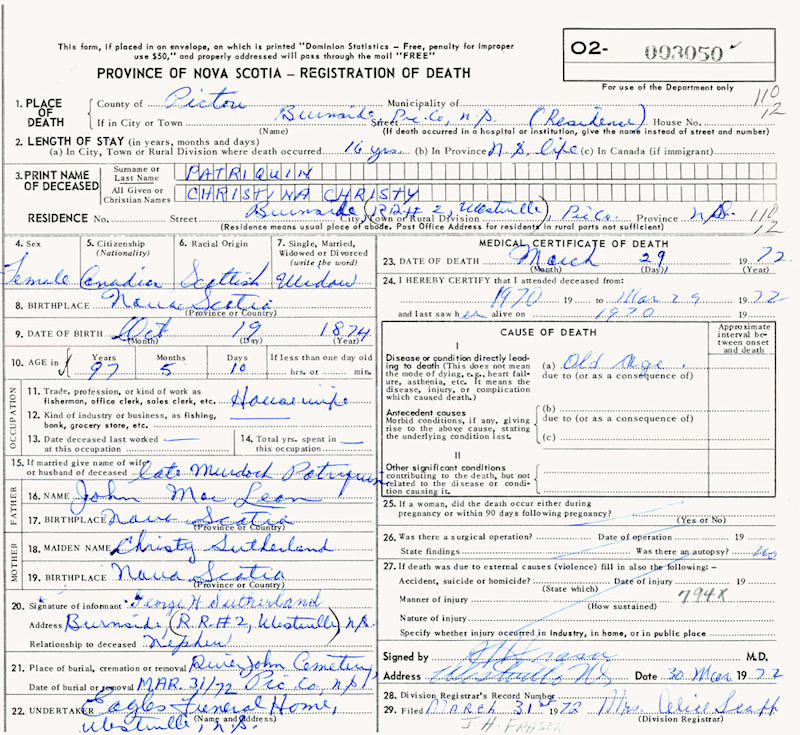 This form, if placed in an envelope, on which is printed "Dominion Statistics – Free, penalty for improper
use $50," and properly addressed will pass through the mail "FREE"
O2- 003050
PROVINCE OF NOVA SCOTIA – REGISTRATION OF DEATH
For use of the Department only
110
12
1. PLACE OF DEATH
County of Pictou Municipality of
If in City or Town Burnside Street Pic. Co, N.S. (Residence) House No.
(Name) (If death occurred in a hospital or institution, give the name instead of street and number)
2. LENGTH OF STAY (in years, months and days)
(a) In City, Town or Rural Division where death occurred 16 yrs. (b) In Province N.S. life (c) In Canada (if immigrant)
3. PRINT NAME OF DECEASED
Surname or Last Name PATRIQUIN
All Given or Christian Names CHRISTINA CHRISTY
RESIDENCE No. Street Burnside (RR# 2, Westville), Pic Co. City, Town or Rural Division Province N.S. 110
12
(Residence means usual place of abode. Post Office Address for residents in rural parts not sufficient)
4. Sex
Female
5. Citizenship (Nationality)
Canadian
6. Racial Origin
Scottish
7. Single, Married, Widowed or Divorced (write the word)
Widow
8. BIRTHPLACE Nova Scotia
(Province or Country)
9. DATE OF BIRTH Oct 19 1874
(Month) (Day) (Year)
10. AGE in Years Months Days If less than one day old
97 5 10 hrs. or min.
OCCUPATION
11. Trade, profession, or kind of work as
fisherman, office clerk, sales clerk, etc. Housewife
12. Kind of industry or business, as fishing,
bank, grocery store, etc.
13. Date deceased last worked
at this occupation
14. Total yrs. spent in
this occupation
15. If married give name of wife
or husband of deceased late Murdoch Patriquin
FATHER
16. NAME John Mac Lean
17. BIRTHPLACE Nova Scotia
(Province or Country)
MOTHER
18. MAIDEN NAME Christy Sutherland
19. BIRTHPLACE Nova Scotia
(Province or Country)
20. Signature of informant George H Sutherland
Address Burnside, (R.R#2, Westville) N.S.
Relationship to deceased Nephew
21. Place of burial, cremation or removal River John Cemetery
Date of burial or removal MAR. 31/72 Pic Co, N.S.
22. UNDERTAKER Eagles Funeral Home,
(Name and Address)
Westville, N.S.
MEDICAL CERTIFICATE OF DEATH
23. DATE OF DEATH March 29 1972
(Month) (Day) (Year)
24. I HEREBY CERTIFY that I attended deceased from:
1970 19 to Mar 29 1972
and last saw her alive on 1970 19
CAUSE OF DEATH
Approximate interval between onset and death
I
Disease or condition directly leading
to death (This does not
mean the mode of dying, e.g., heart failure,
asthenia, etc. It means the
disease, injury, or complication
which caused death.)
(a) Old Age.
due to (or as a consequence of)
Antecedent causes
Morbid conditions, if any, giving
rise to the above cause, stating
the underlying condition last.
(b)
due to (or as a consequence of)
(c)
II
Other significant conditions
contributing to the death, but not
related to the disease or condition
causing it.
25. If a woman, did the death occur either during
pregnancy or within 90 days following pregnancy?
(Yes or No)
26. Was there a surgical operation? Date of operation 19
State findings Was there an autopsy? no
27. If death was due to external causes (violence) fill in also the following:–
Accident, suicide or homicide? Date of injury 19
(State which)
Manner of injury 794X
(How sustained)
Nature of injury
Specify whether injury occurred in industry, in home, or in public place
Signed by J H Fraser M.D.
Address Westville NS Date 30 Mar 1972
28. Division Registrar's Record Number
29. Filed MARCH 31st 1972 Mrs. Alice Scott
J.H. FRASER (Division Registrar)